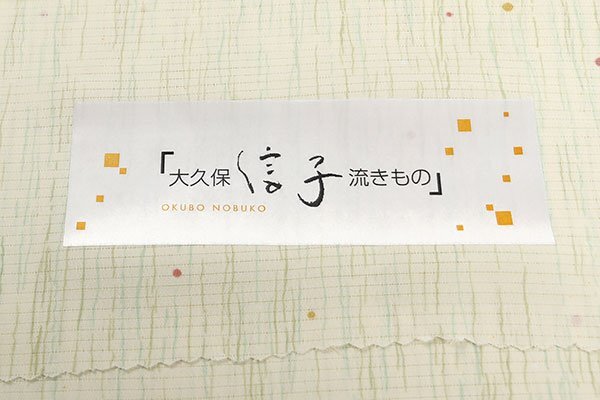 「大久保信子流きもの」
OKUBO NOBUKO